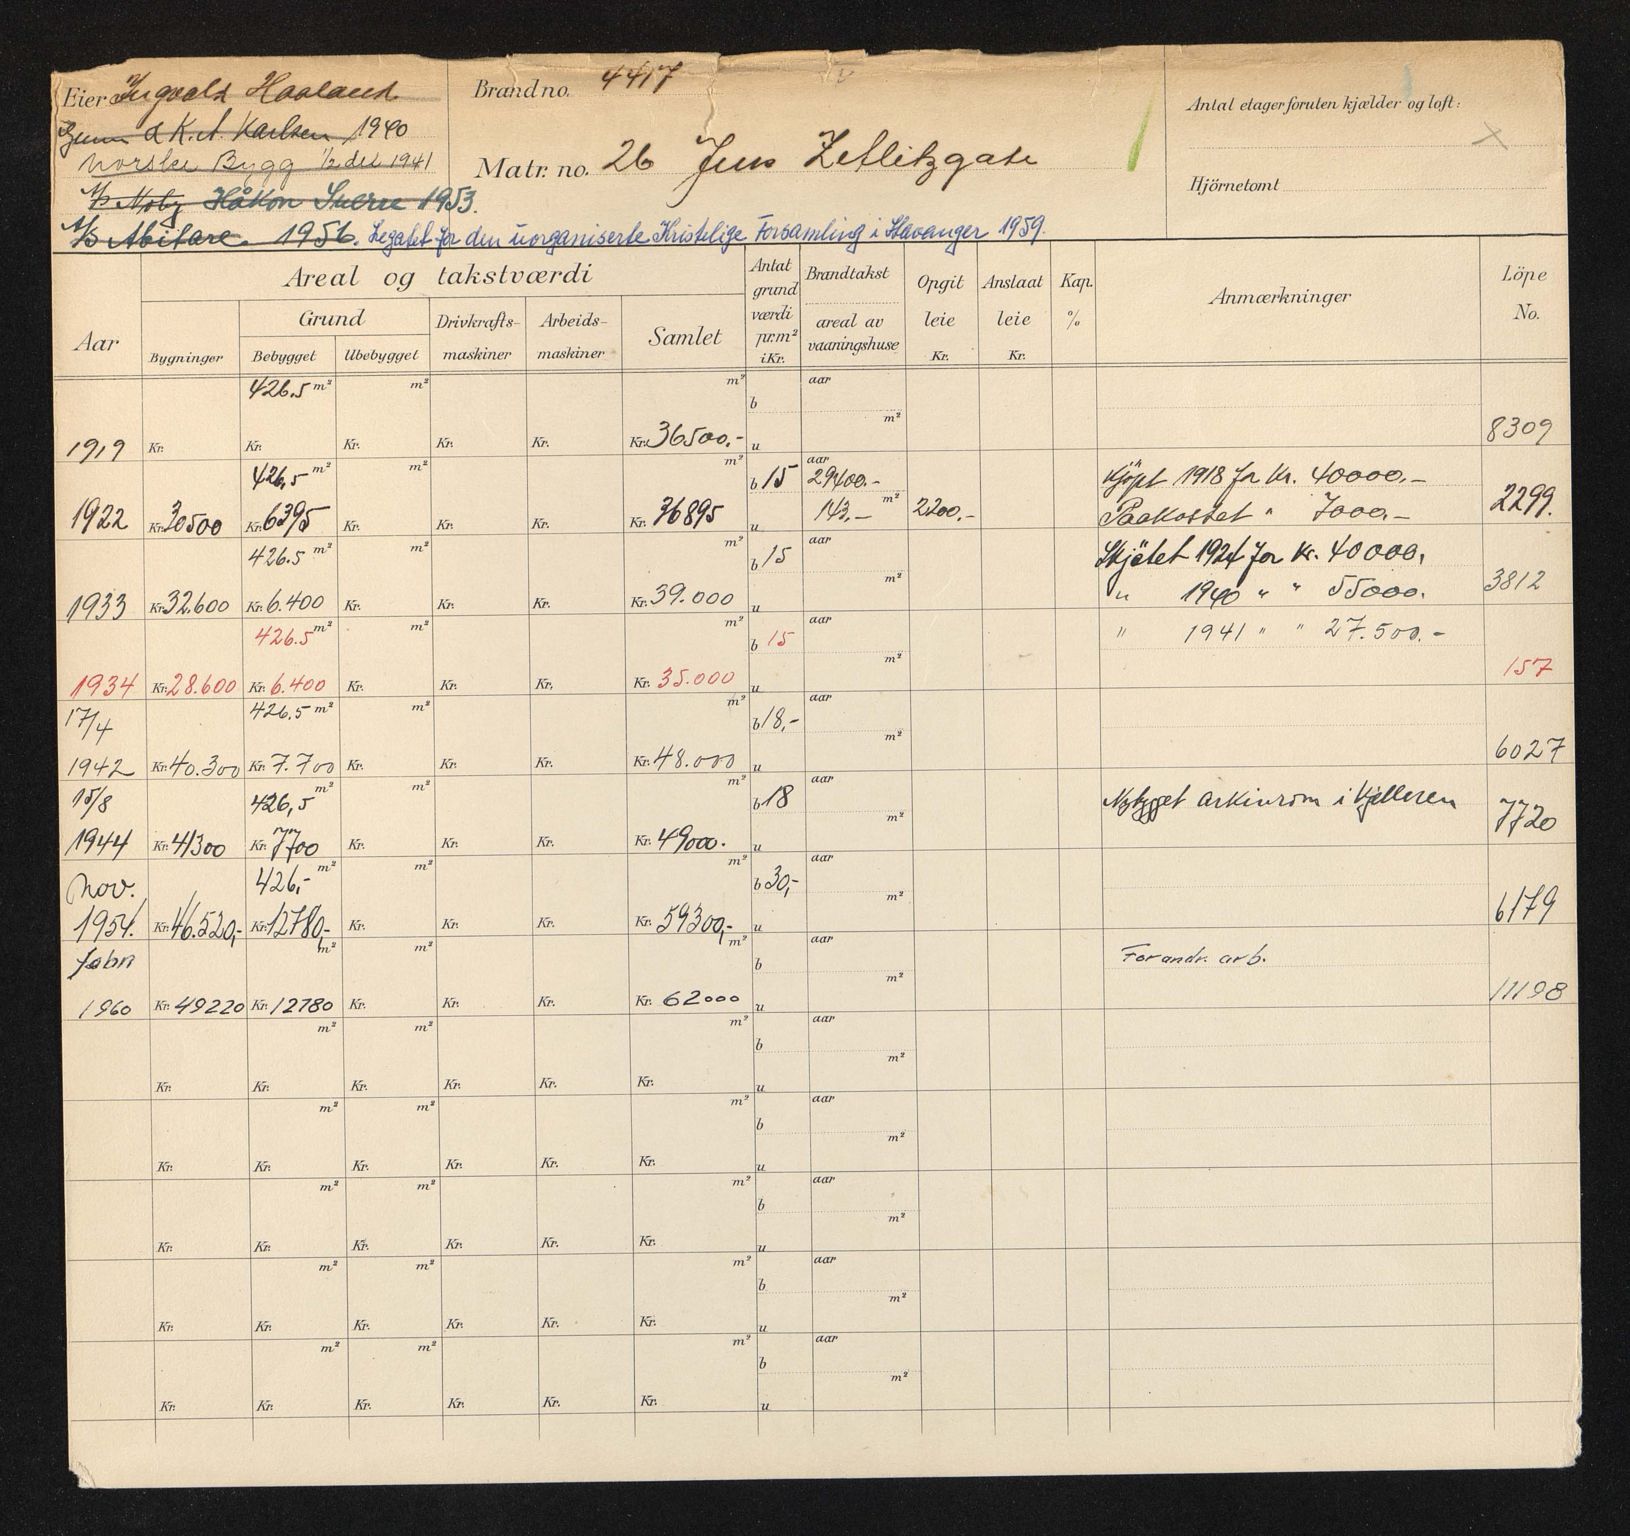 Eier Ingvald Haaland
Brand no. 4417
Antal etager foruten kjælder og loft:
d K. A. Karlsen 1940
Matr. no. 26 Jens Zetlitzgate
Norske Bygg 1/2 del 1941
Hjörnetomt
A/S Noby Håkon Sverre 1953.
A/S Abitare. 1956. Legatet for den uorganiserte Kristelige Forsamling i Stavanger 1959.
Aar
Areal og takstværdi
Bygninger
Grund
Bebygget
Ubebygget
Drivkrafts-maskiner
Arbeids-maskiner
Samlet
Antat grund værdi pr. m² i Kr.
Brandtakst
areal av vaaningshuse
Opgit leie Kr.
Anslaat leie Kr.
Kap. %
Anmærkninger
Löpe No.
426.5 m² m² m² aar
b
m²
1919 Kr. Kr. Kr. Kr. Kr. Kr. 36500.- u 8309
426,5 m² m² m² b 15 aar 29400.- Kjöpt 1918 for Kr. 40000.-
1922 Kr. 30500 Kr. 6395 Kr. Kr. Kr. Kr. 36895 u 143,- m² 2200.- Paakostet " 7000.- 2299.
426.5 m² m² m² b 15 aar Skjötet 1924 for Kr. 40000.
1933 Kr. 32.600 Kr. 6.400 Kr. Kr. Kr. Kr. 39.000 u m² " 1940 " " 55000. 3812
426.5 m² m² m² b 15 aar " 1941 " " 27.500.-
1934 Kr. 28.600 Kr. 6.400 Kr. Kr. Kr. Kr. 35.000 u m² 157
17/4 426.5 m² m² m² b 18,- aar
1942 Kr. 40.300 Kr. 7.700 Kr. Kr. Kr. Kr. 48.000 u m² 6027
15/8 426,5 m² m² m² b 18 aar Nybygget arkivrom i Kjelleren
1944 Kr. 41300 Kr. 7700 Kr. Kr. Kr. Kr. 49000. u m² 7720
Nov. 426,- m² m² m² b 30,- aar
1954. Kr. 46.520,- Kr. 12780,- Kr. Kr. Kr. Kr. 59300,- u m² 6179
febr m² m² m² b aar Forandr. arb.
1960 Kr. 49220 Kr. 12780 Kr. Kr. Kr. Kr. 62000 u m² 11198
m² m² m² aar
b
m²
Kr. Kr. Kr. Kr. Kr. Kr. u
m² m² m² aar
b
m²
Kr. Kr. Kr. Kr. Kr. Kr. u
m² m² m² aar
b
m²
Kr. Kr. Kr. Kr. Kr. Kr. u
m² m² m² aar
b
m²
Kr. Kr. Kr. Kr. Kr. Kr. u
m² m² m² aar
b
m²
Kr. Kr. Kr. Kr. Kr. Kr. u